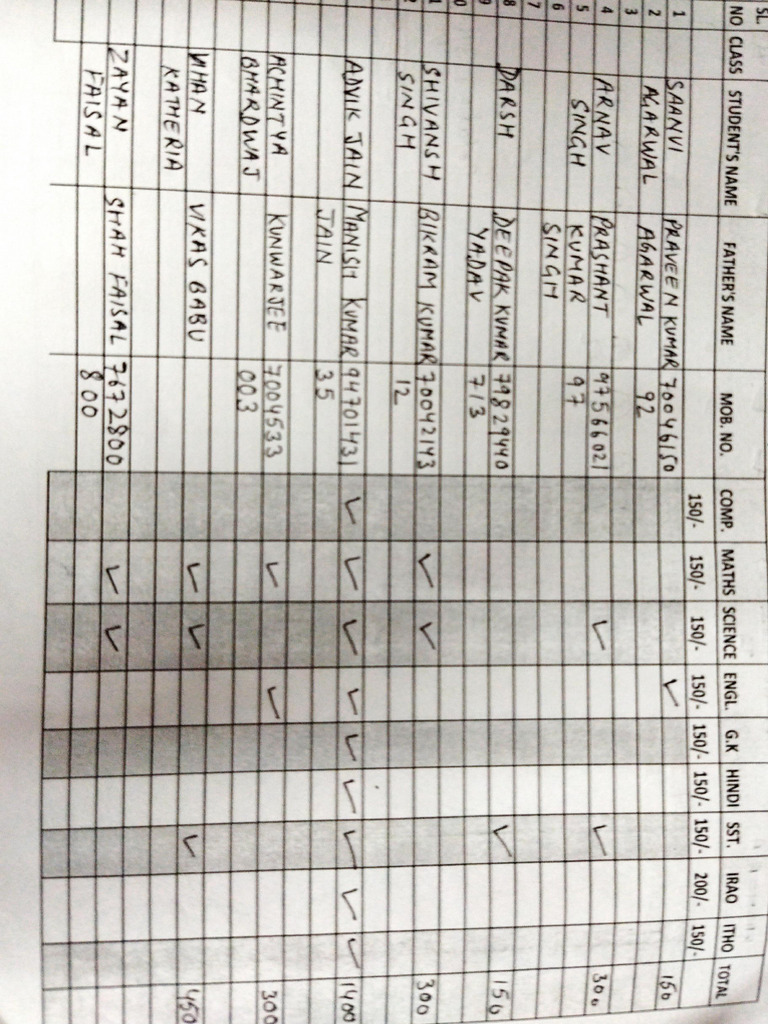 SL
NO CLASS STUDENT'S NAME FATHER'S NAME MOB. NO. COMP. MATHS SCIENCE ENGL. G.K HINDI SST. IRAO ITHO TOTAL
150/- 150/- 150/- 150/- 150/- 150/- 150/- 200/- 150/-
1 SAANVI PRAVEEN KUMAR 70046150 ✓ 150
2 AGARWAL AGARWAL 92
3
4 ARNAV PRASHANT 97566021 ✓ ✓ 300
5 SINGH KUMAR 97
6 SINGH
7
8 DARSH DEEPAK KUMAR 79829440 ✓ 150
9 YADAV 713
0
1 SHIVANSH BIKRAM KUMAR 70042143 ✓ ✓ 300
2 SINGH 12
ADVIK JAIN MANISH KUMAR 94701431 ✓ ✓ ✓ ✓ ✓ ✓ ✓ ✓ ✓ 1400
JAIN 35
ACHINTYA KUNWARJEE 7004533 ✓ ✓ 300
BHARDWAJ 003
VIHAN VIKAS BABU ✓ ✓ ✓ 450
KATHERIA
ZAYAN SHAH FAISAL 7672800 ✓ ✓
FAISAL 800